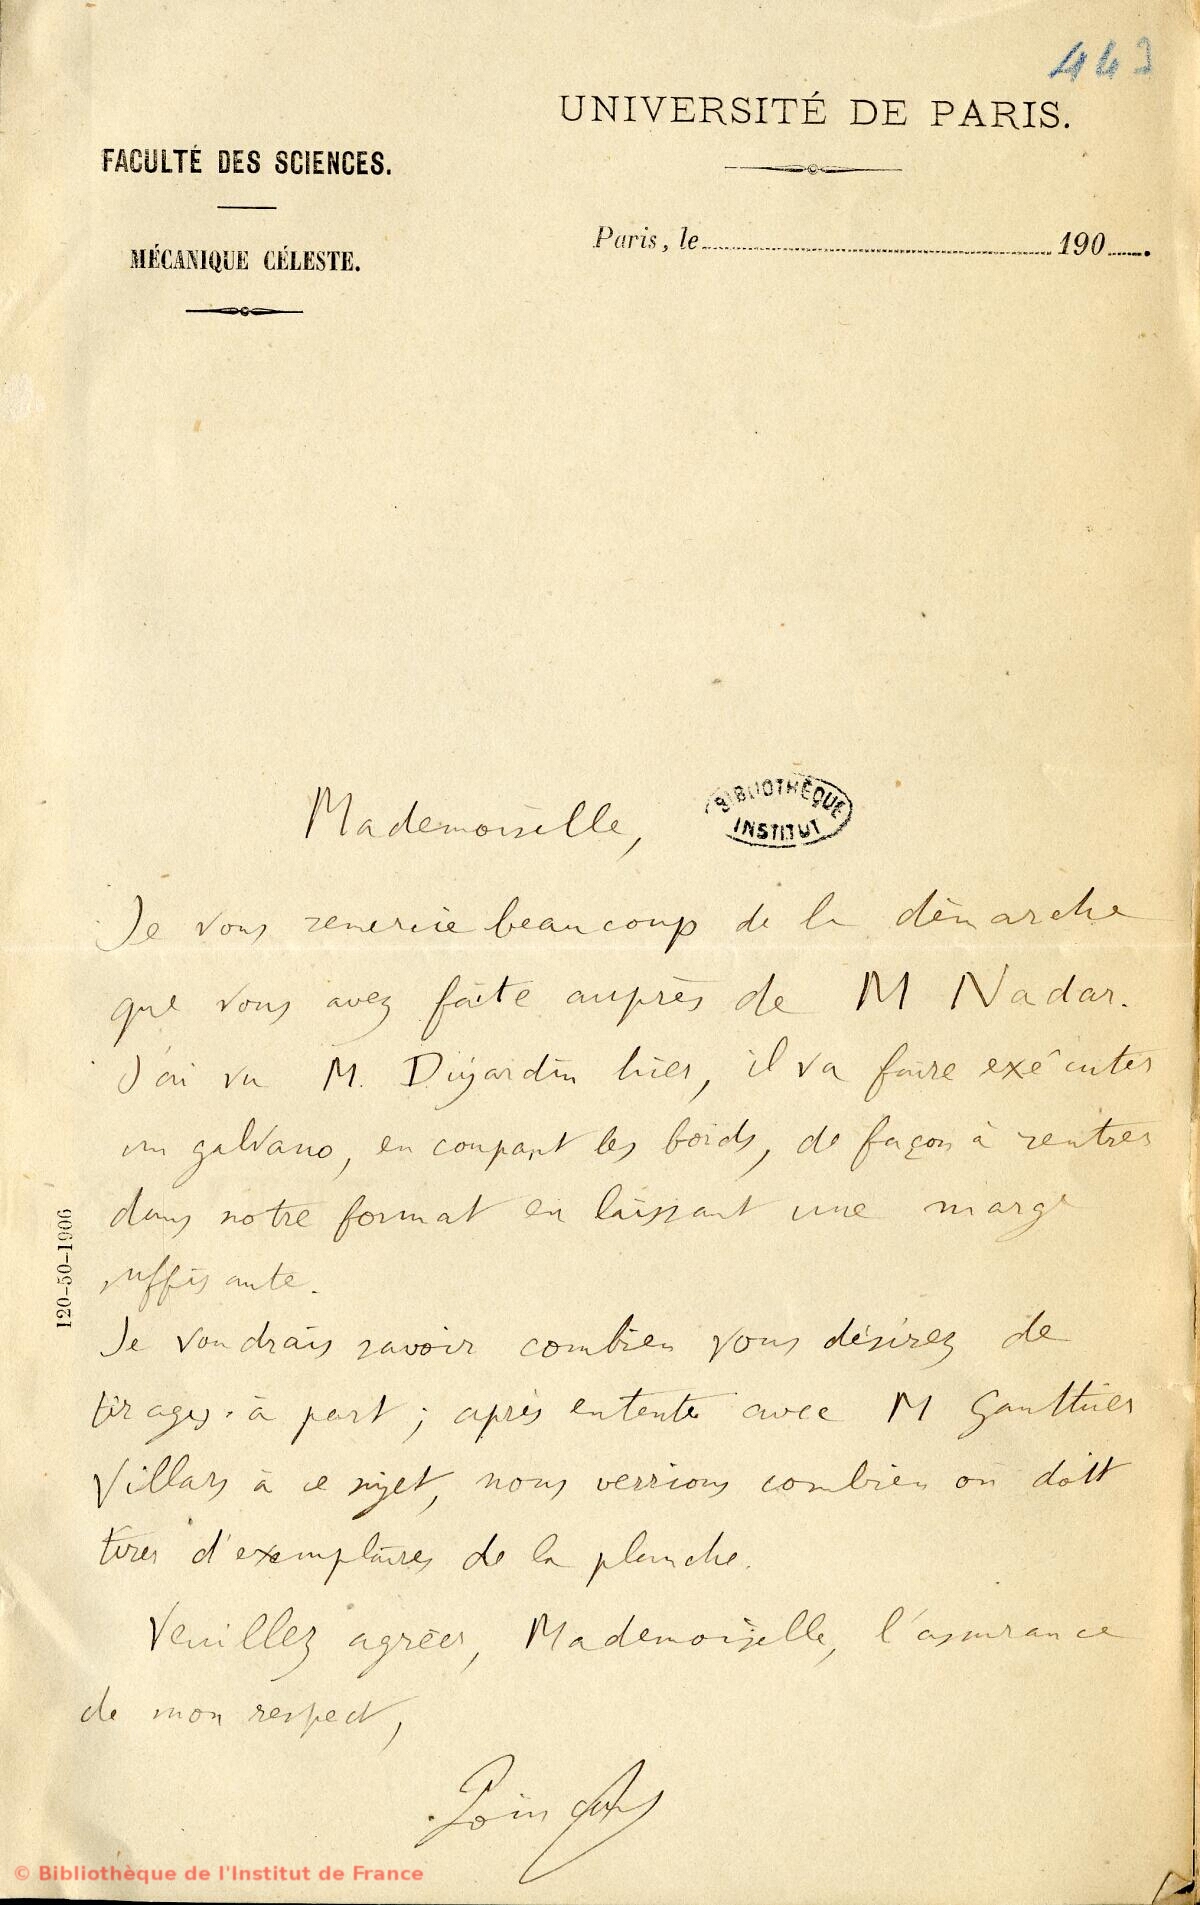 443
UNIVERSITÉ DE PARIS.
FACULTÉ DES SCIENCES.
MÉCANIQUE CÉLESTE.
Paris, le 190 .
Mademoiselle,
BIBLIOTHÈQUE
INSTITUT
Je vous remercie beaucoup de la démarche
que vous avez faite auprès de M Nadar.
J'ai vu M. Dujardin hier, il va faire exécuter
un galvano, en coupant les bords, de façon à rentrer
dans notre format en laissant une marge
suffisante.
Je voudrais savoir combien vous désirez de
tirages à part ; après entente avec M Gauthier
Villars à ce sujet, nous verrions combien on doit
tirer d'exemplaires de la planche.
Veuillez agréer, Mademoiselle, l'assurance
de mon respect,
Poincaré
120-50-1906
© Bibliothèque de l'Institut de France